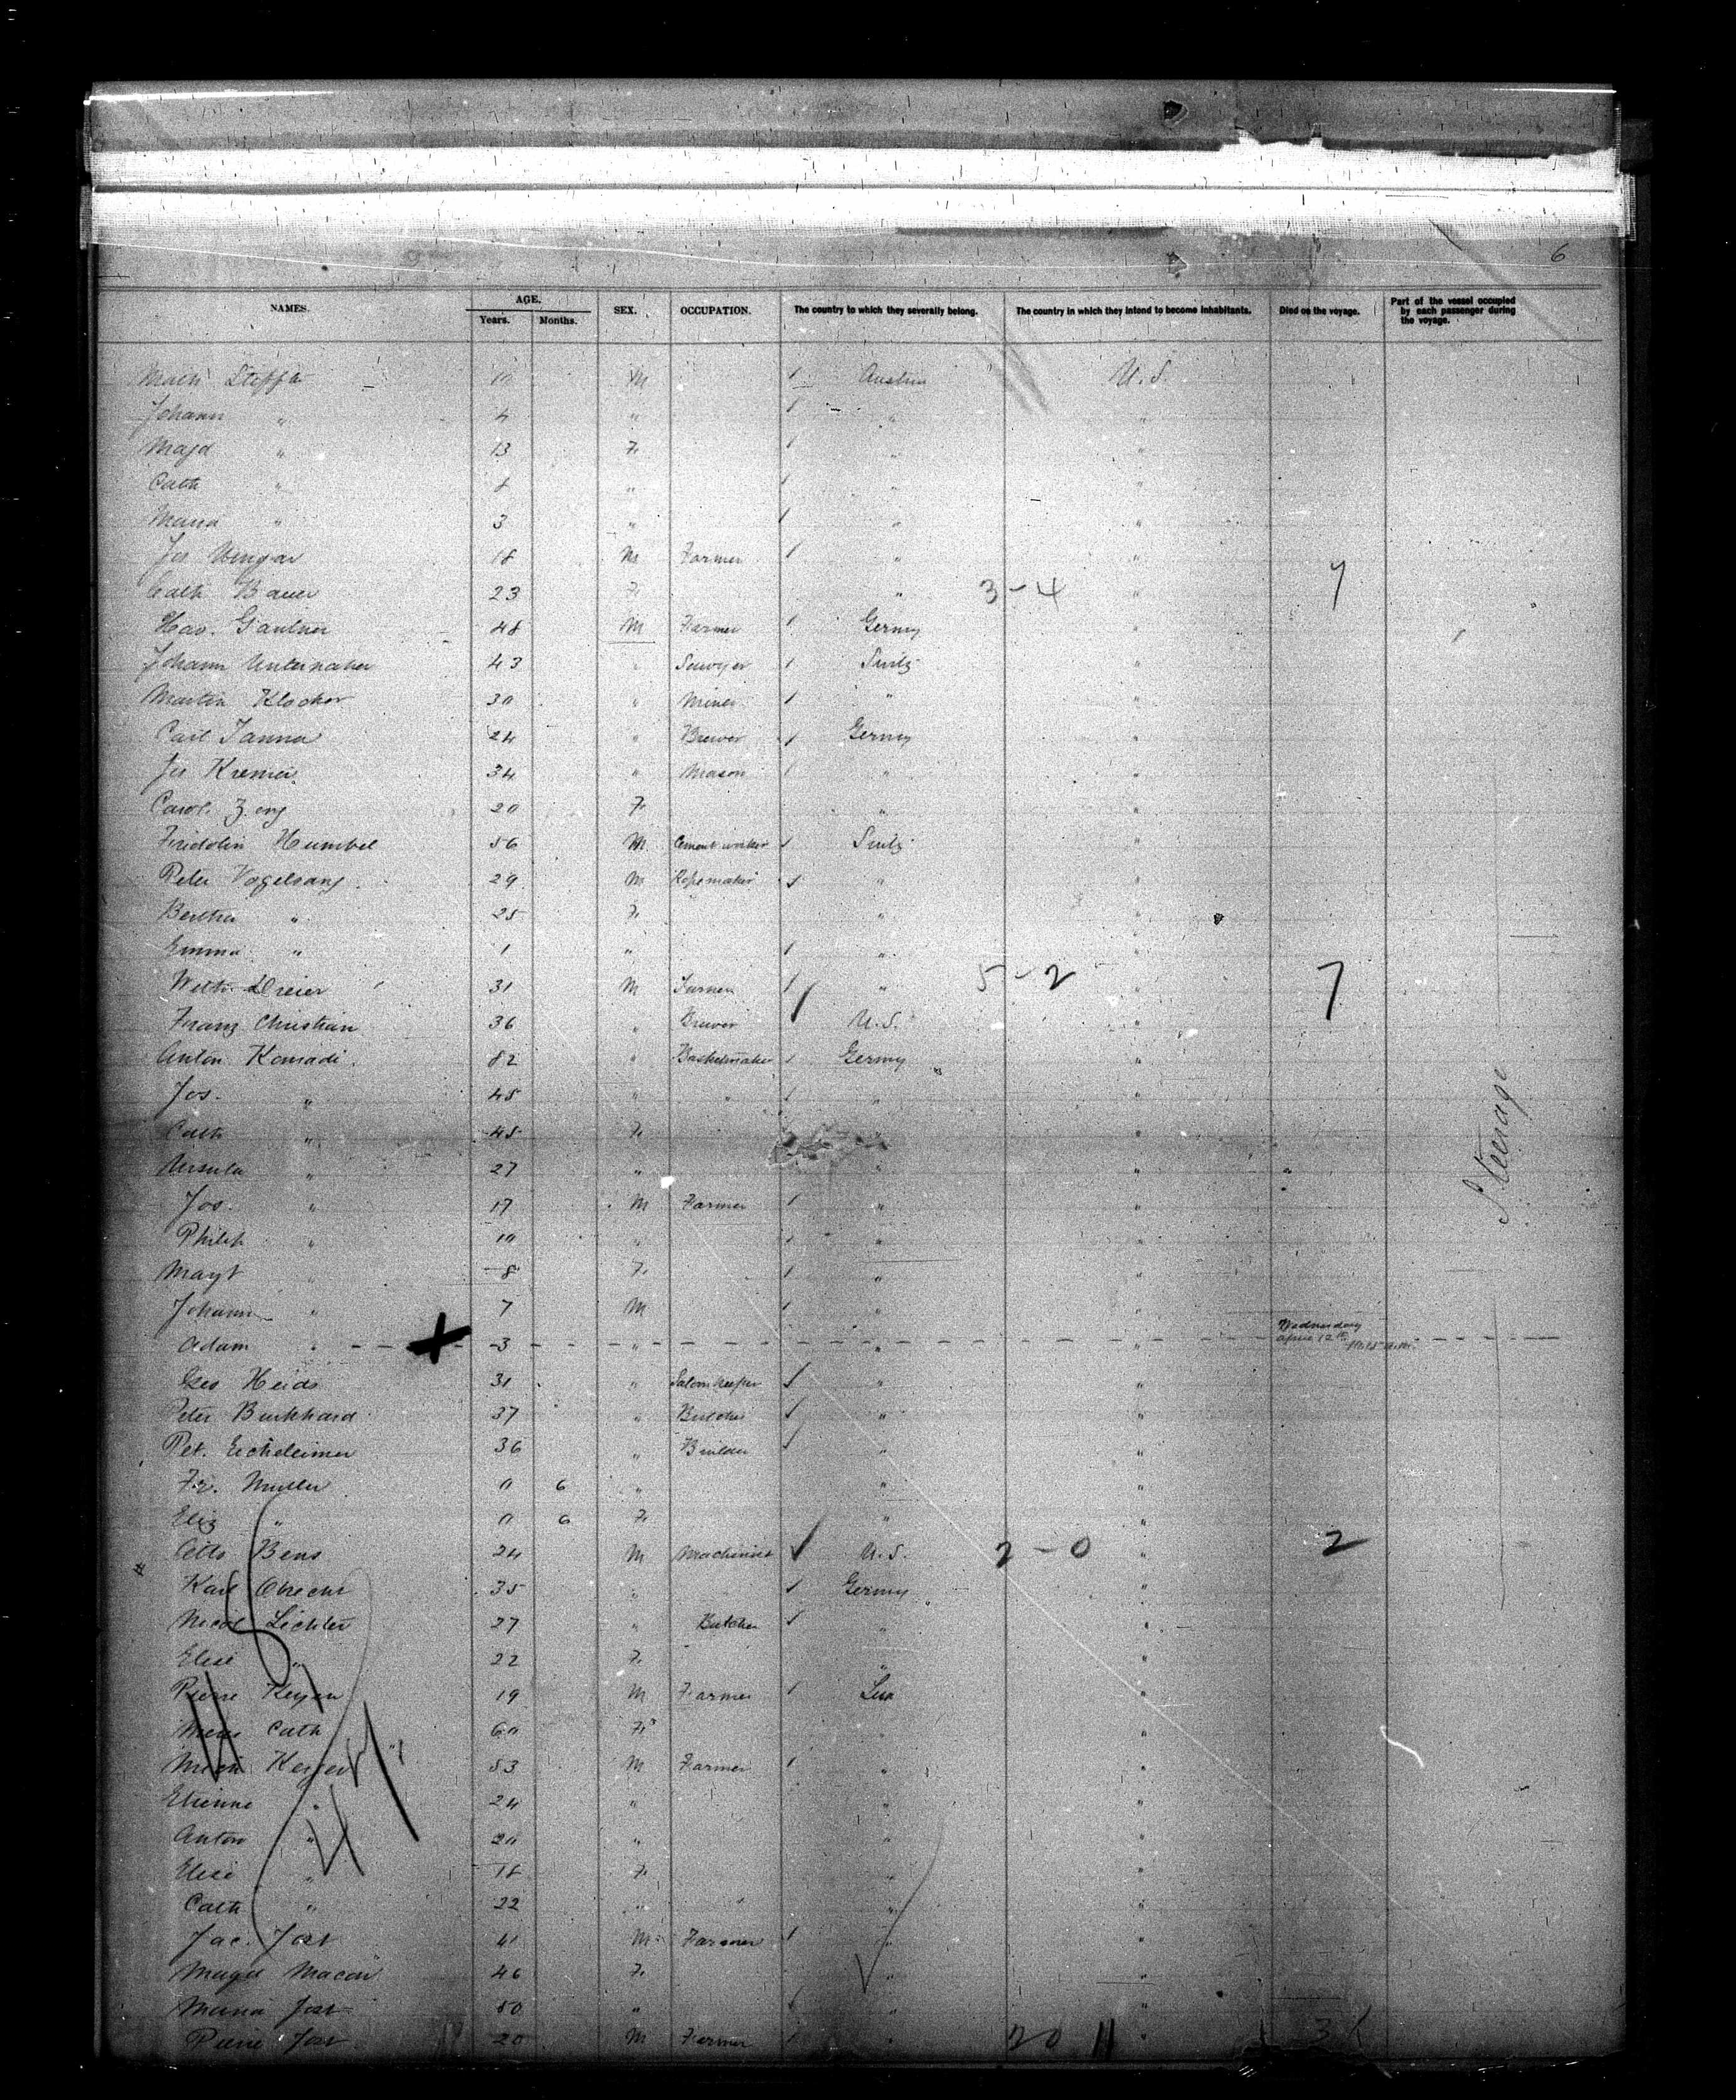 6
NAMES. AGE. Years. Months. SEX. OCCUPATION. The country to which they severally belong. The country in which they intend to become inhabitants. Died on the voyage. Part of the vessel occupied by each passenger during the voyage.
Steffa M 1 Austria U.S.
Johann " 4 " 1 " "
Magd " 13 F. 1 " "
Cath " 8 " 1 " "
Maria " 3 " 1 " "
Jos 18 M Farmer 1 " "
Cath Bauer 23 F. " 3-4 " 7
Gautner 48 M Farmer 1 Germy "
Johann Unternaher 43 " Sawyer 1 Switz "
Martin Klocker 30 " Miner 1 " "
Carl Janna 24 " Brewer 1 Germy "
Jos Kremer 34 " Mason 1 " "
Carol. Zeng 20 F. " "
Fridolin Humbel 56 M. Cement worker 1 Switz "
Peter Vogelsang 29 M Ropemaker 1 " "
Bertha " 25 F. " "
Emma " 1 " 1 " "
Wilh. Dreier 31 M 1 " 5-2 " 7
Franz Christian 36 " Brewer U.S. "
Anton Konradi 82 " Basketmaker 1 Germy "
Jos. " 45 " " 1 " "
Cath " 45 F. " "
Ursula " 27 " " "
Jos. " 17 M Farmer 1 " "
Philip " 10 " 1 " "
Magt " 8 F. 1 " "
Johann " 7 M 1 " "
Adam " 3 " " Wednesday April 12th
Geo Heids 31 " Saloon Keeper " "
Peter Burkhard 37 " Butcher " "
Pet. Eicheleimer 36 " Builder " "
Fr. Muller 0 6 " " "
Eliz " 0 6 F. " "
Otto Bens 24 M Machinist U.S. 2-0 " 2
Karl Obrecht 35 " Germy "
Nicol Lichter 27 " Butcher " "
Elise " 22 F. " "
Pierre Keyser 19 M Farmer 1 Lux "
Cath 60 F. " "
Keyser 53 M Farmer 1 " "
Etienne " 24 " " "
Anton " 20 " " "
Elise " 18 F. " "
Cath " 22 " " "
Jac. Jost 41 M Farmer 1 " "
Magd Macon 46 F. " "
Maria Jost 50 " " "
Pierre Jost 20 M Farmer 1 " 20 11
Steerage